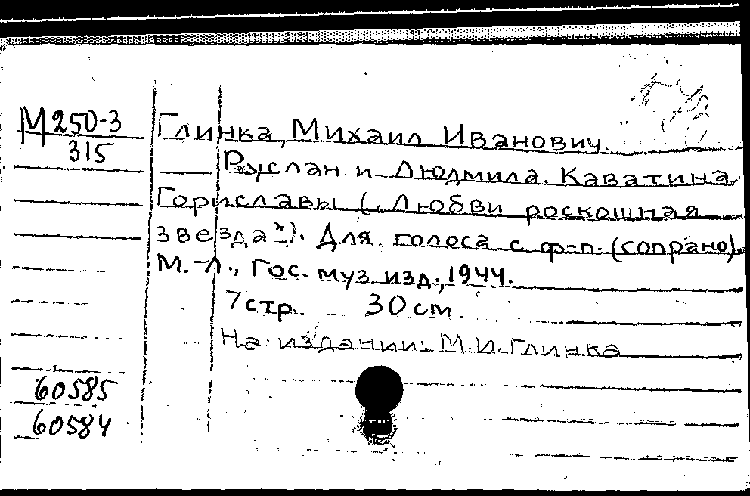 М250-3
315
Глинка, Михаил Иванович.
Руслан и Людмила. Каватина
Гориславы („Любви роскошная
звезда"). Для голоса с ф-п. (сопрано).
М.-Л., Гос. муз. изд., 1944.
7 стр. 30 см.
На издании: М.И. Глинка
60585
60584